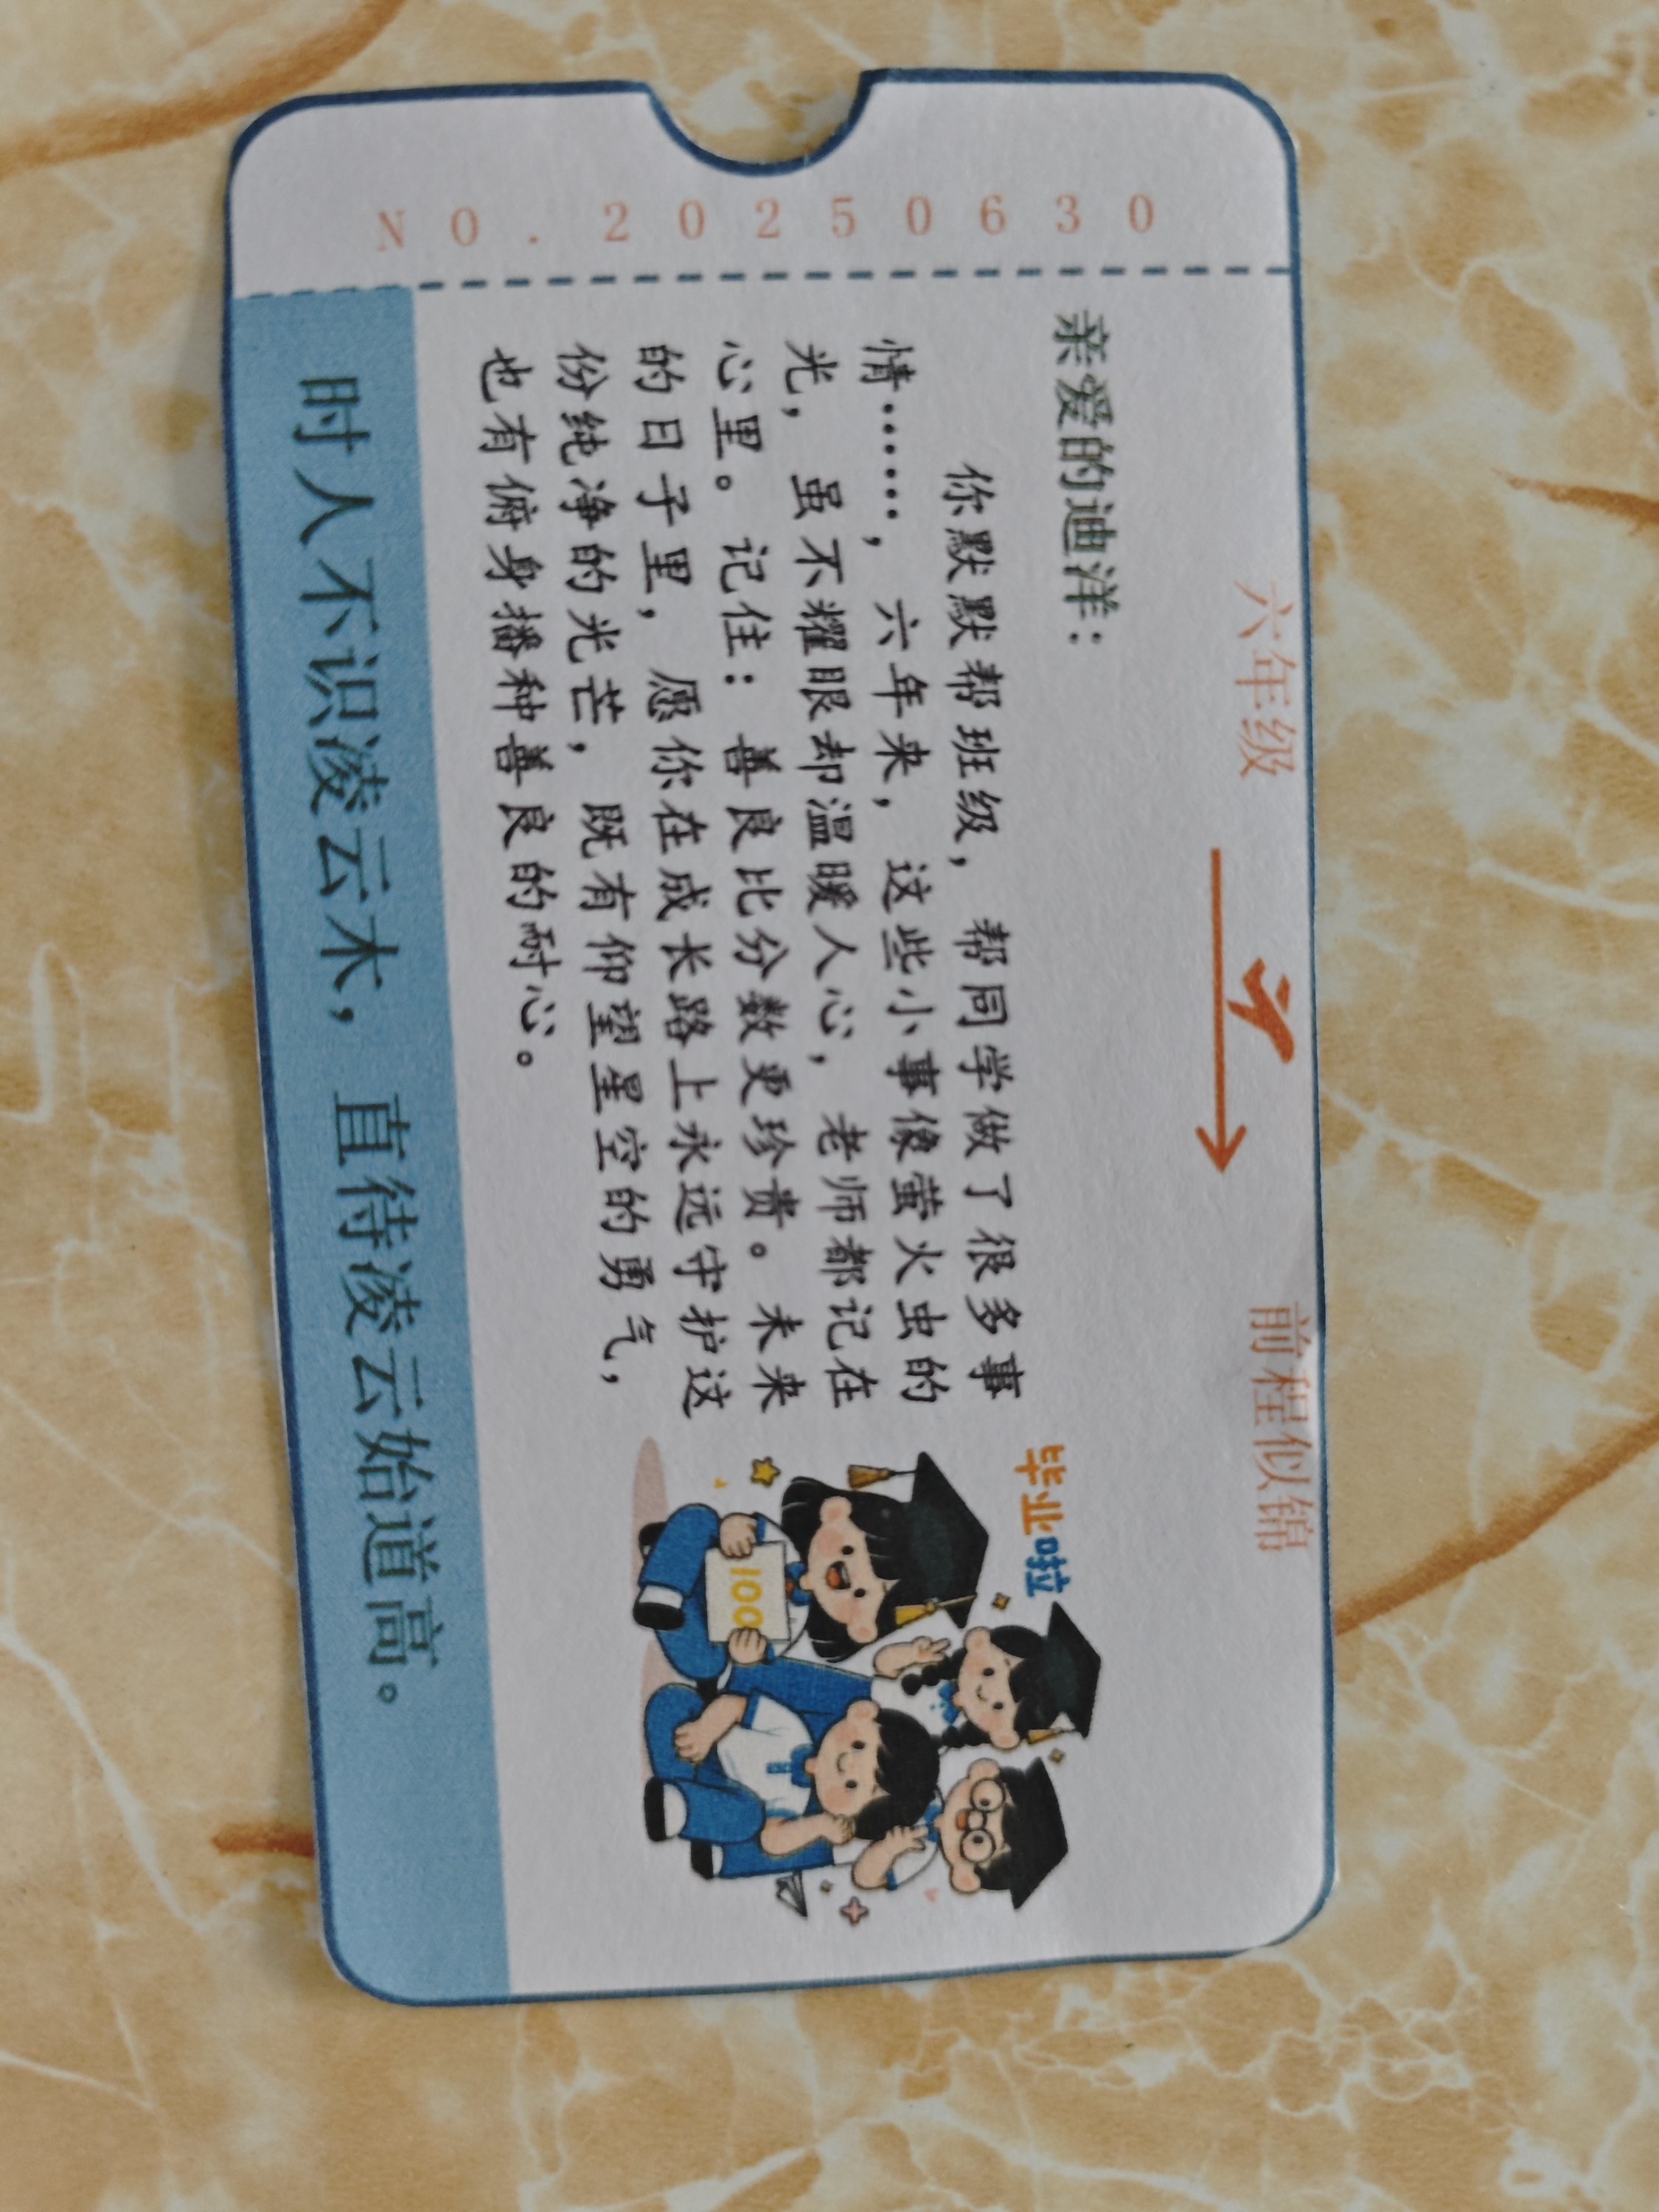 NO.20250630
六年级 前程似锦
亲爱的迪洋：
你默默帮班级，帮同学做了很多事
情……，六年来，这些小事像萤火虫的
光，虽不耀眼却温暖人心，老师都记在
心里。记住：善良比分数更珍贵。未来
的日子里，愿你在成长路上永远守护这
份纯净的光芒，既有仰望星空的勇气，
也有俯身播种善良的耐心。
毕业啦
100
时人不识凌云木，直待凌云始道高。